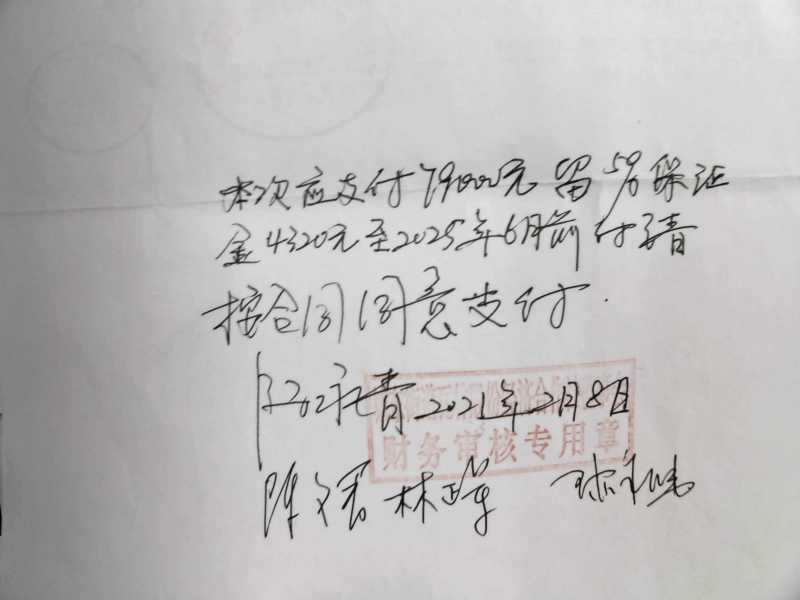 本次应支付79000元留5%保证
金4320元至2025年6月前付清
按合同同意支付.
永青 2021年2月8日
财务审核专用章
陈文 林